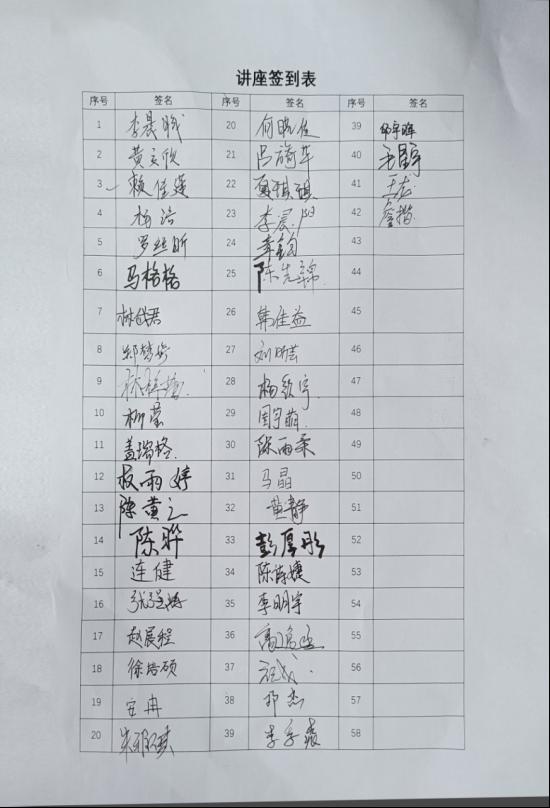 讲座签到表
序号 签名 序号 签名 序号 签名
1 李晨曦 20 何晓佳 39
2 黄 欣 21 吕旖华 40
3 赖佳莲 22 夏琪琪 41 王志
4 杨洁 23 李晨阳 42 詹楷
5 罗丝昕 24 李钧 43
6 马格格 25 陈先锦 44
7 林 君 26 韩佳益 45
8 郑梦 27 刘昕芸 46
9 28 杨 宇 47
10 柳莹 29 周宇萌 48
11 盖瑞格 30 陈雨柔 49
12 权雨婷 31 马晶 50
13 陈黄 32 黄静 51
14 陈晔 33 彭厚彤 52
15 连健 34 陈 婕 53
16 张 35 李明宇 54
17 赵晨程 36 高 55
18 徐培硕 37 56
19 安冉 38 邓杰 57
20 朱 39 李 58